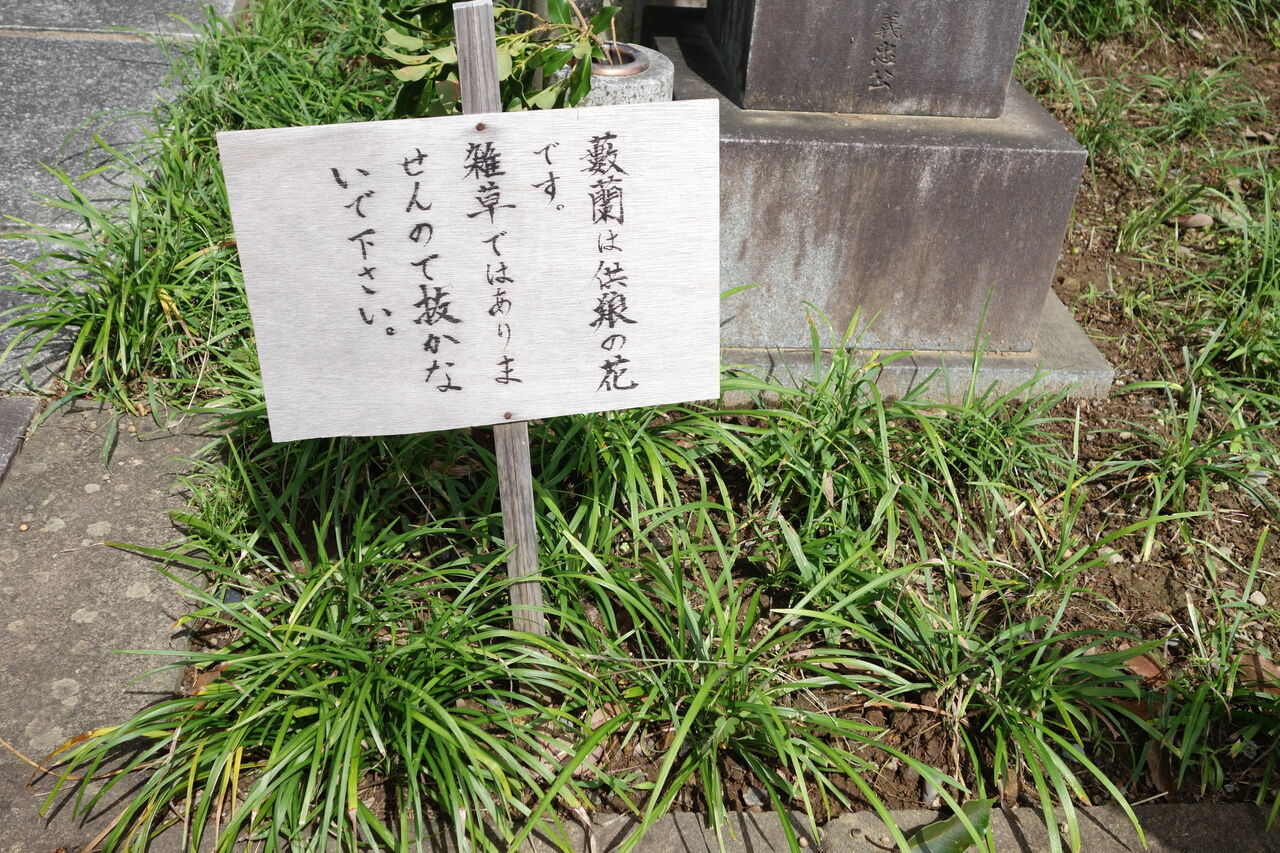 藪蘭は供の花
です。
雑草ではありま
せんので抜かな
いで下さい。
義忠公